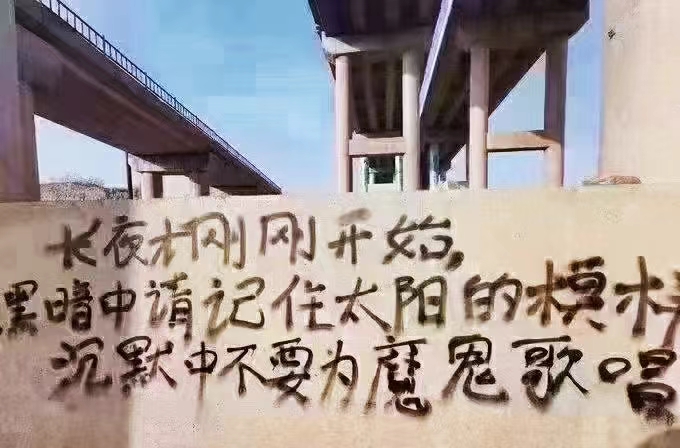 长夜才刚刚开始，
黑暗中请记住太阳的模样
沉默中不要为魔鬼歌唱